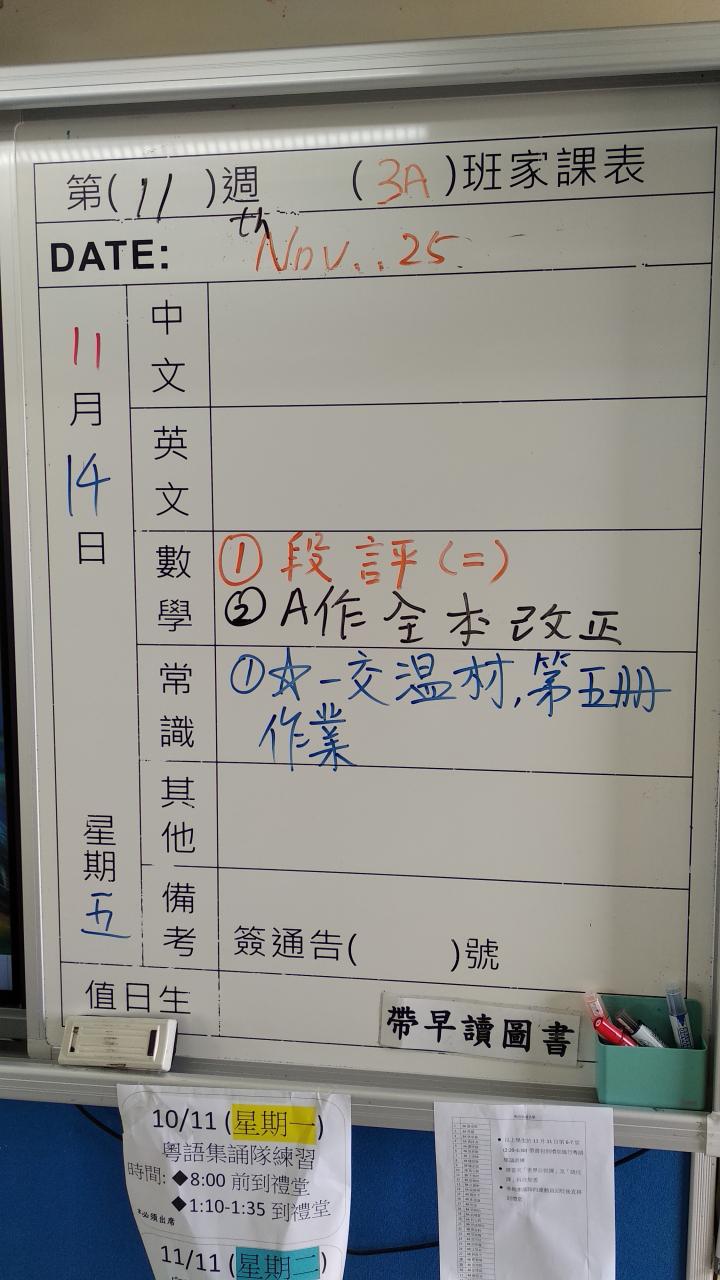 第( 11 )週 ( 3A )班家課表
DATE: th Nov..25
11月14日 星期五
中文
英文
數學 ① 段評(二)
② A作全本改正
常識 ①☆-交温材,第五冊
作業
其他
備考 簽通告( )號
值日生
帶早讀圖書
10/11 (星期一)
粵語集誦隊練習
時間: ◆8:00 前到禮堂
◆1:10-1:35 到禮堂
*必須出席
11/11 (星期二)